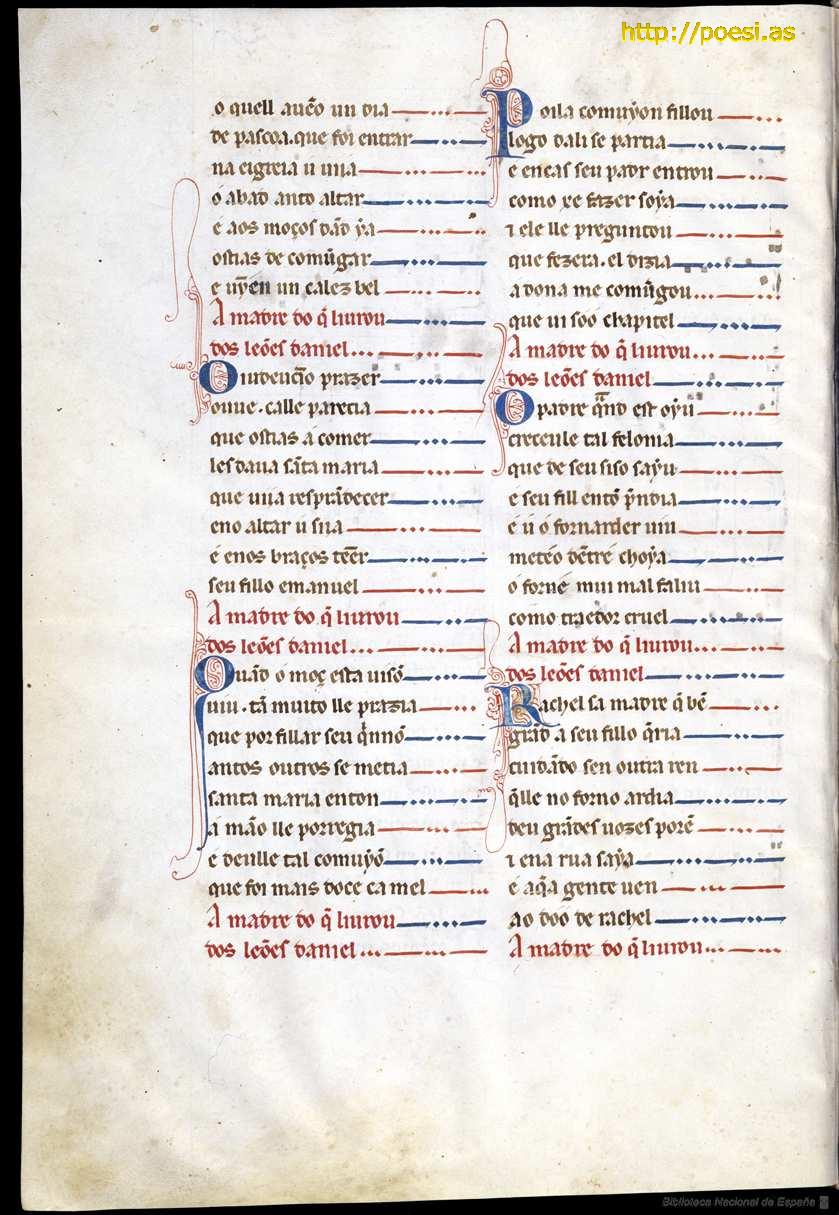 http://poesi.as
o quell auẽo un dia
de pascoa.que foi entrar
na eigreia ú uiia
ó abad anto altar
e aos moços dãd ẏa
ostias de comũgar
e uẏen un calez bel
A madre do q̃ liurou
dos leões daniel
O iudeucỹo prazer
ouue.calle parecia
que ostias a comer
les daua sãta maria
que uiia resprãdecer
eno altar ú siia
e enos braços tẽer
seu fillo emanuel
A madre do q̃ liurou
dos leões daniel
Quãd o moç esta uisõ
uiu.tã muito lle prazia
que por fillar seu q̃nnõ
antos outros se metia
santa maria enton
a mão lle porregia
e deulle tal comuỹõ
que foi mais doce ca mel
A madre do q̃ liurou
dos leões daniel
Poila comuỹon fillou
logo dali se partia
e encas seu padr entrou
como xe fazer soẏa
ꞇ ele lle preguntou
que fezera.el dizia
a dona me comũgou
que ui soo chapitel
A madre do q̃ liurou
dos leões daniel
O padre q̃nd est oẏu
creceulle tal felonia
que de seu siso saẏu
e seu fill entõ p̃ndia
e ú o forn arder uiu
meteo dẽtre choẏa
o forne mui mal faliu
como traedor cruel
A madre do q̃ liurou
dos leões daniel
Rachel sa madre q̃ bẽ
grãd a seu fillo q̃ria
cuidãdo sen outra ren
q̃lle no forno ardia
deu grãdes uozes porẽ
ꞇ ena rua saẏa
e aq̃ a gente uen
ao doo de rachel
A madre do q̃ liurou
Biblioteca Nacional de España